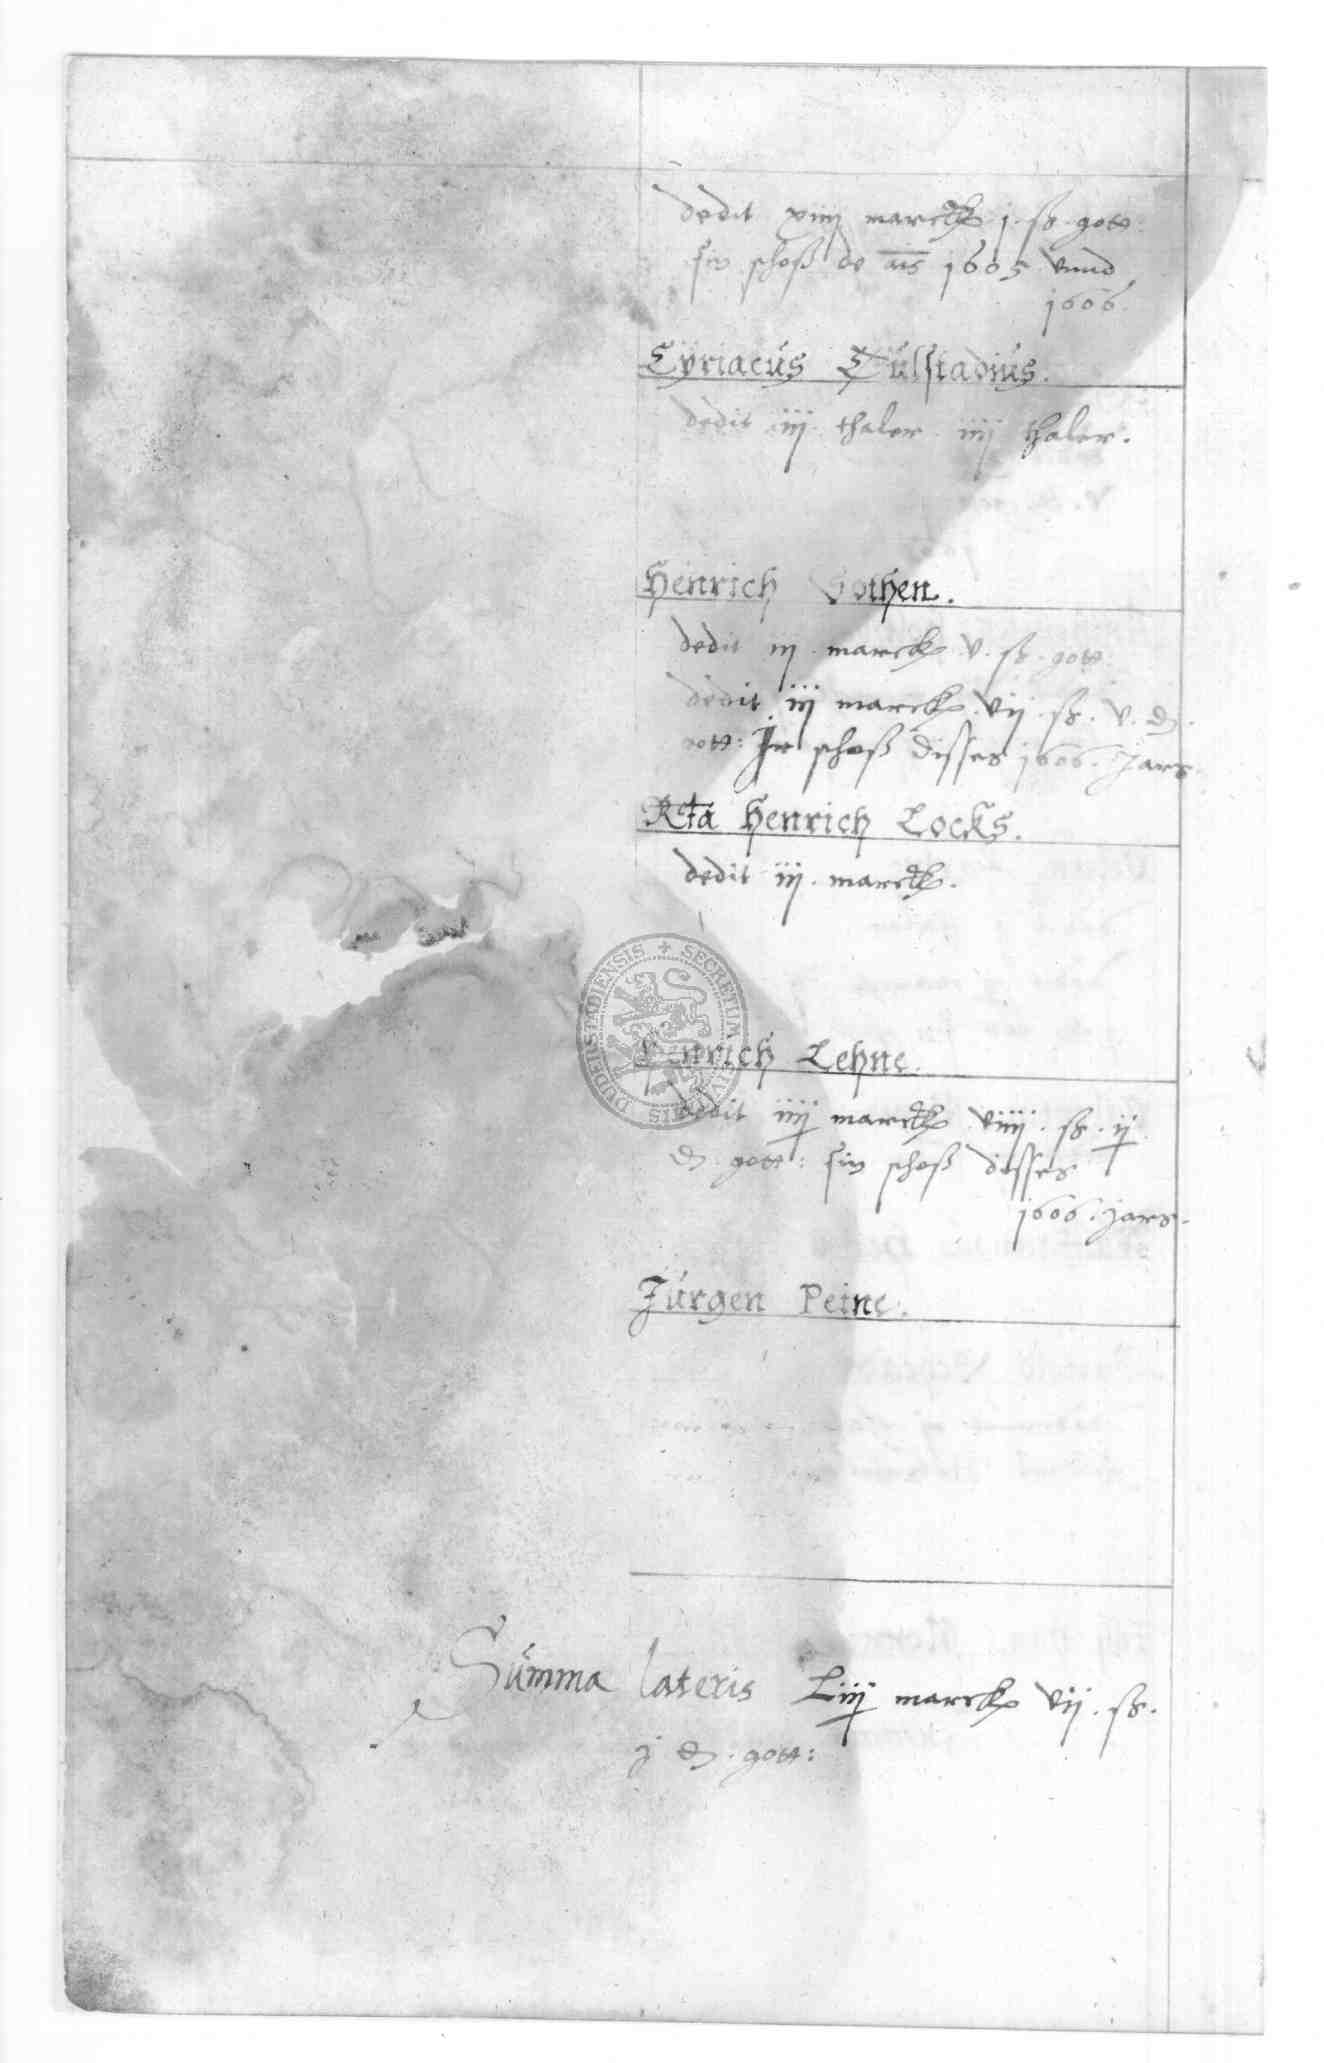 dedit xiiij marck j. ß. gott:
sin schoß de ais 1605 vnnd
1606.
Cyriacus Tulstadius.
dedit iij thaler iiij thaler.
Henrich Gothen.
dedit iij marck v. ß. gott:
dedit iij marck vij. ß. v. d.
gott: Ir schoß disses 1606. Jars.
Rta Henrich Locks.
dedit iij. marck.
Henrich Lehne.
dedit iiij marck viiij. ß. ij
d. gott: sin schoß disses
1606. jars.
Jurgen Peine.
Summa lateris Liiij marck vij. ß.
j d. gott:
SECRETUM CIVITATIS DUDERSTADIENSIS